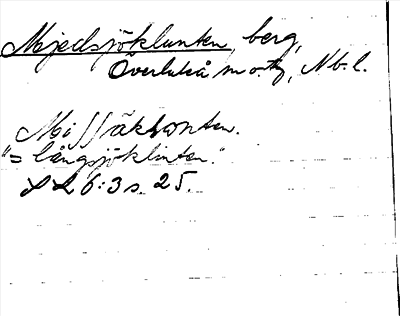 Mjedsjöklunten, berg,
Överluleå sn o. tg, Nb. l.
Mi ʃʃäkłonten.
"= långsjöklinten."
SvL 6:3 s. 25.